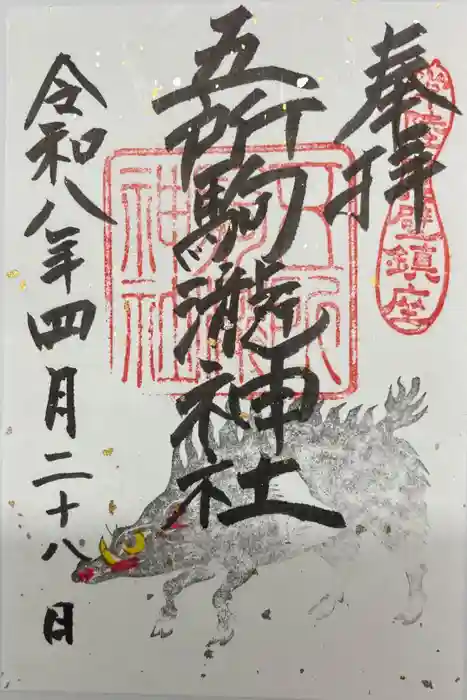 奉拝
鎮座
五所駒瀧神社
令和八年四月二十八日